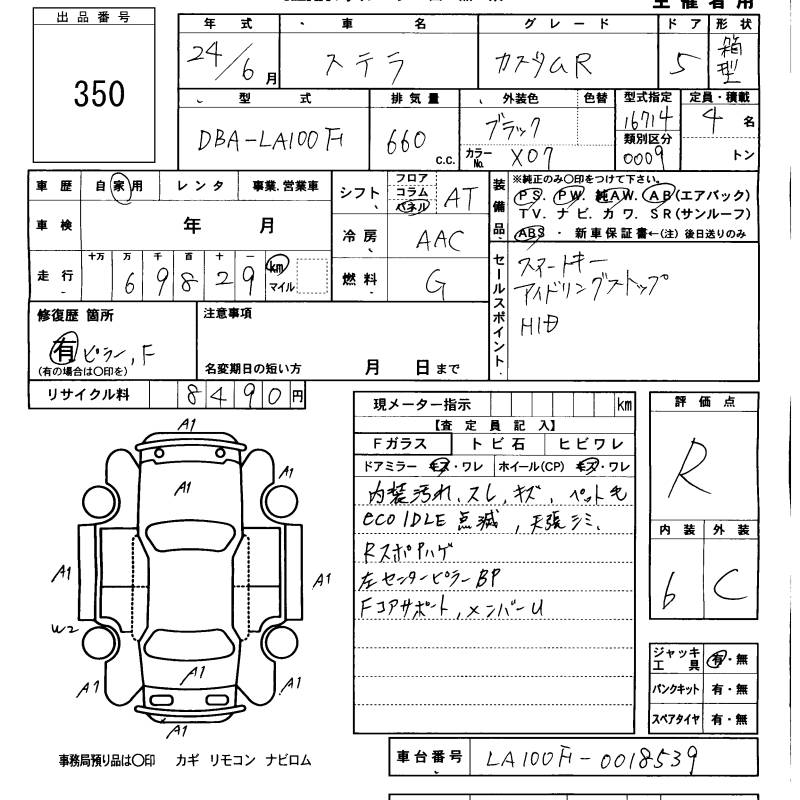 主催者用
出品番号
350
年式 車名 グレード ドア 形状
24/6月 ステラ カスタムR 5 箱型
型式 排気量 外装色 色替 型式指定 定員・積載
DBA-LA100F 660 c.c. ブラック 16714 4名
カラーNo. X07 類別区分 0009 トン
車歴 自家用 レンタ 事業.営業車
車検 年 月
走行 十万 万 千 百 十 一
69829 km マイル
シフト フロア コラム パネル AT
冷房 AAC
燃料 G
装備品
※純正のみ○印をつけて下さい。
PS. PW. 純AW. AB(エアバック)
TV. ナビ. カワ. SR(サンルーフ)
ABS ・ 新車保証書←(注) 後日送りのみ
セールスポイント
スマートキー
アイドリングストップ
HID
修復歴 箇所
有 ピラー, F
(有の場合は○印を)
注意事項
名変期日の短い方 月 日まで
リサイクル料 8490円
A1
A1
A1
A1
A1
W2
A1
A1
A1
A1
現メーター指示 km
【査定員記入】
Fガラス トビ石 ヒビワレ
ドアミラー キズ・ワレ ホイール(CP) キズ・ワレ
内装汚れ、スレ、キズ、ペット毛
eco IDLE 点滅, 天張シミ、
Rスポハゲ
左センターピラーBP
Fコアサポート, メンバーU
評価点
R
内装 外装
6 C
ジャッキ工具 有・無
パンクキット 有・無
スペアタイヤ 有・無
事務局預り品は○印 カギ リモコン ナビロム
車台番号 LA100F-0018539